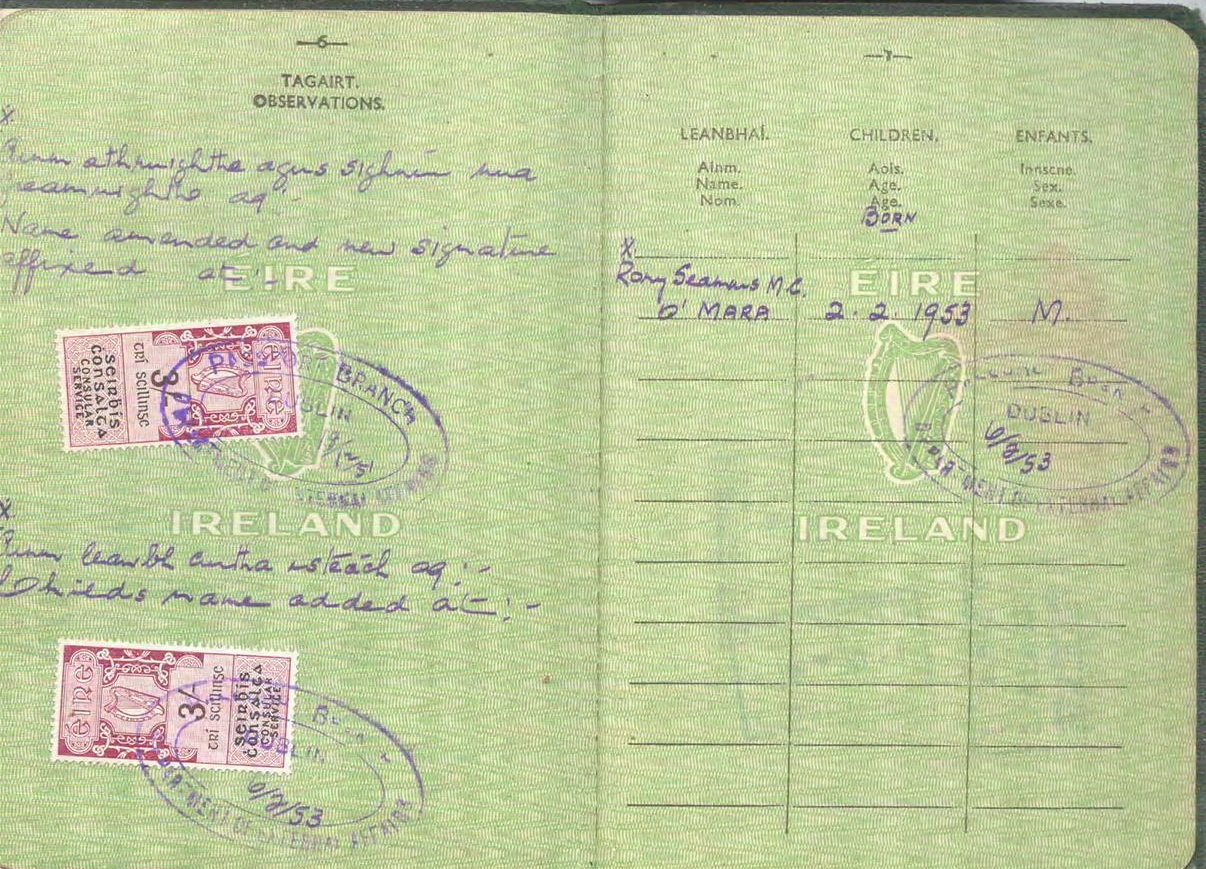 —6—
TAGAIRT.
OBSERVATIONS.
X
Ainm athruighthe agus sighniú nua
greamuighthe ag :-
Name amended and new signature
affixed at :-
ÉIRE
éire
3/-
trí scillinge
seirbís
consalca
CONSULAR
SERVICE
BRANCH
DUBLIN
DEPARTMENT OF EXTERNAL AFFAIRS
IRELAND
X
Ainm leanbh curtha isteach ag :-
Child's name added at :-
éire
3/-
trí scillinge
seirbís
consalca
CONSULAR
SERVICE
DUBLIN
6/2/53
DEPARTMENT OF EXTERNAL AFFAIRS
—7—
LEANBHAÍ. CHILDREN. ENFANTS.
Ainm. Aois. Innscne.
Name. Age. Sex.
Nom. Age. Sexe.
BORN
X
ÉIRE
Rory Seamus M.C.
O'MARA 2. 2. 1953 M.
DUBLIN
6/2/53
DEPARTMENT OF EXTERNAL AFFAIRS
IRELAND